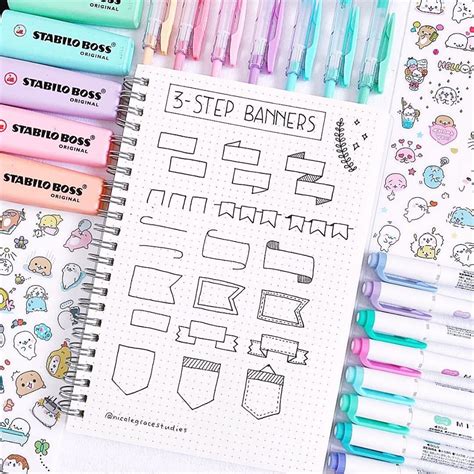 STABILO BOSS
ORIGINAL
STABILO BOSS
ORIGINAL
STABILO BOSS
ORIGINAL
STABILO BOSS
ORIGINAL
3-STEP BANNERS
@nicolegracestudies
HELLO